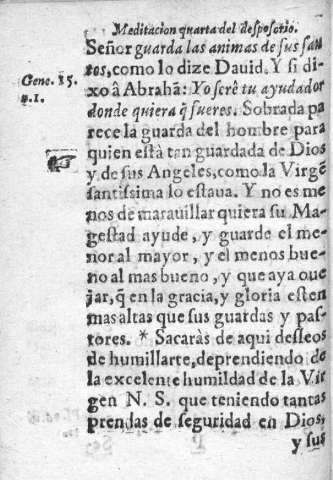 Meditacion quarta del desposorio.
Señor guarda las animas de sus san
tos, como lo dize Dauid. Y si di-
Gene. 15.
n.1.
xo â Abrahã: Yo serè tu ayudador
donde quiera q̃ fueres. Sobrada pa
rece la guarda del hombre para
quien està tan guardada de Dios
y de sus Angeles, como la Virgẽ
santissima lo estaua. Y no es me
nos de marauillar quiera su Ma-
gestad ayude, y guarde el me-
nor al mayor, y el menos bue-
no al mas bueno, y que aya oue
jar, q̃ en la gracia, y gloria esten
mas altas que sus guardas y pas-
tores. * Sacaràs de aqui desseos
de humillarte, deprendiendo de
la excelente humildad de la Vir
gen N. S. que teniendo tantas
prendas de seguridad en Dios,
y sus